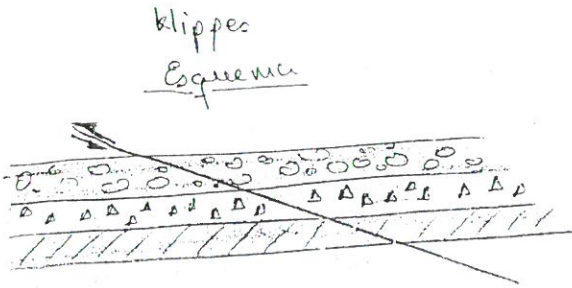 Klippes
Esquema